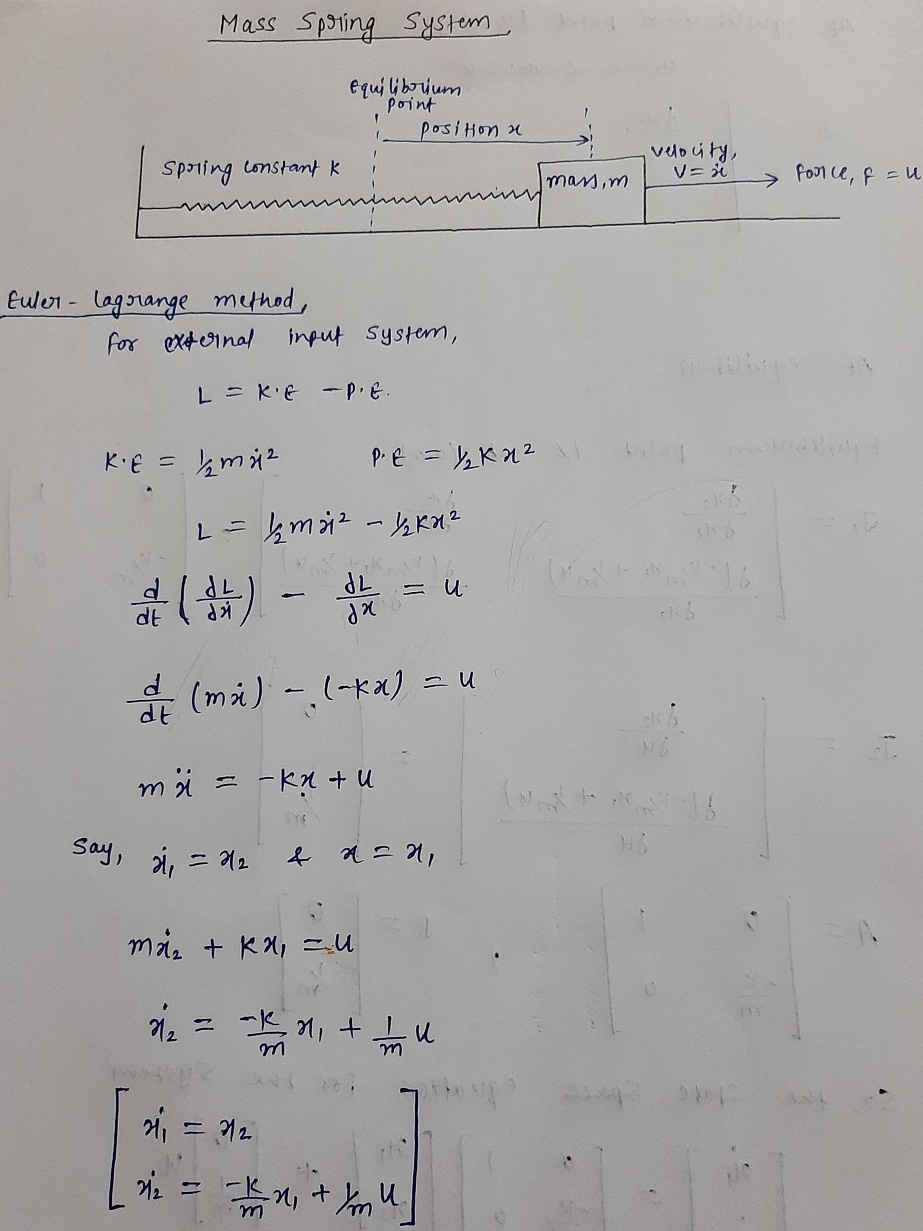 Mass Spring System
equilibrium
point
position x
Spring constant K
mass, m
velocity,
V = ẋ
Force, F = u
Euler - lagrange method,
for external input system,
L = K.E - P.E.
K.E = 1/2 m ẋ² P.E = 1/2 K x²
L = 1/2 m ẋ² - 1/2 K x²
d/dt (∂L/∂ẋ) - ∂L/∂x = u
d/dt (mẋ) - (-Kx) = u
m ẍ = -Kx + u
Say, ẋ₁ = x₂ & x = x₁
mẋ₂ + Kx₁ = u
ẋ₂ = -K/m x₁ + 1/m u
ẋ₁ = x₂
ẋ₂ = -K/m x₁ + 1/m u